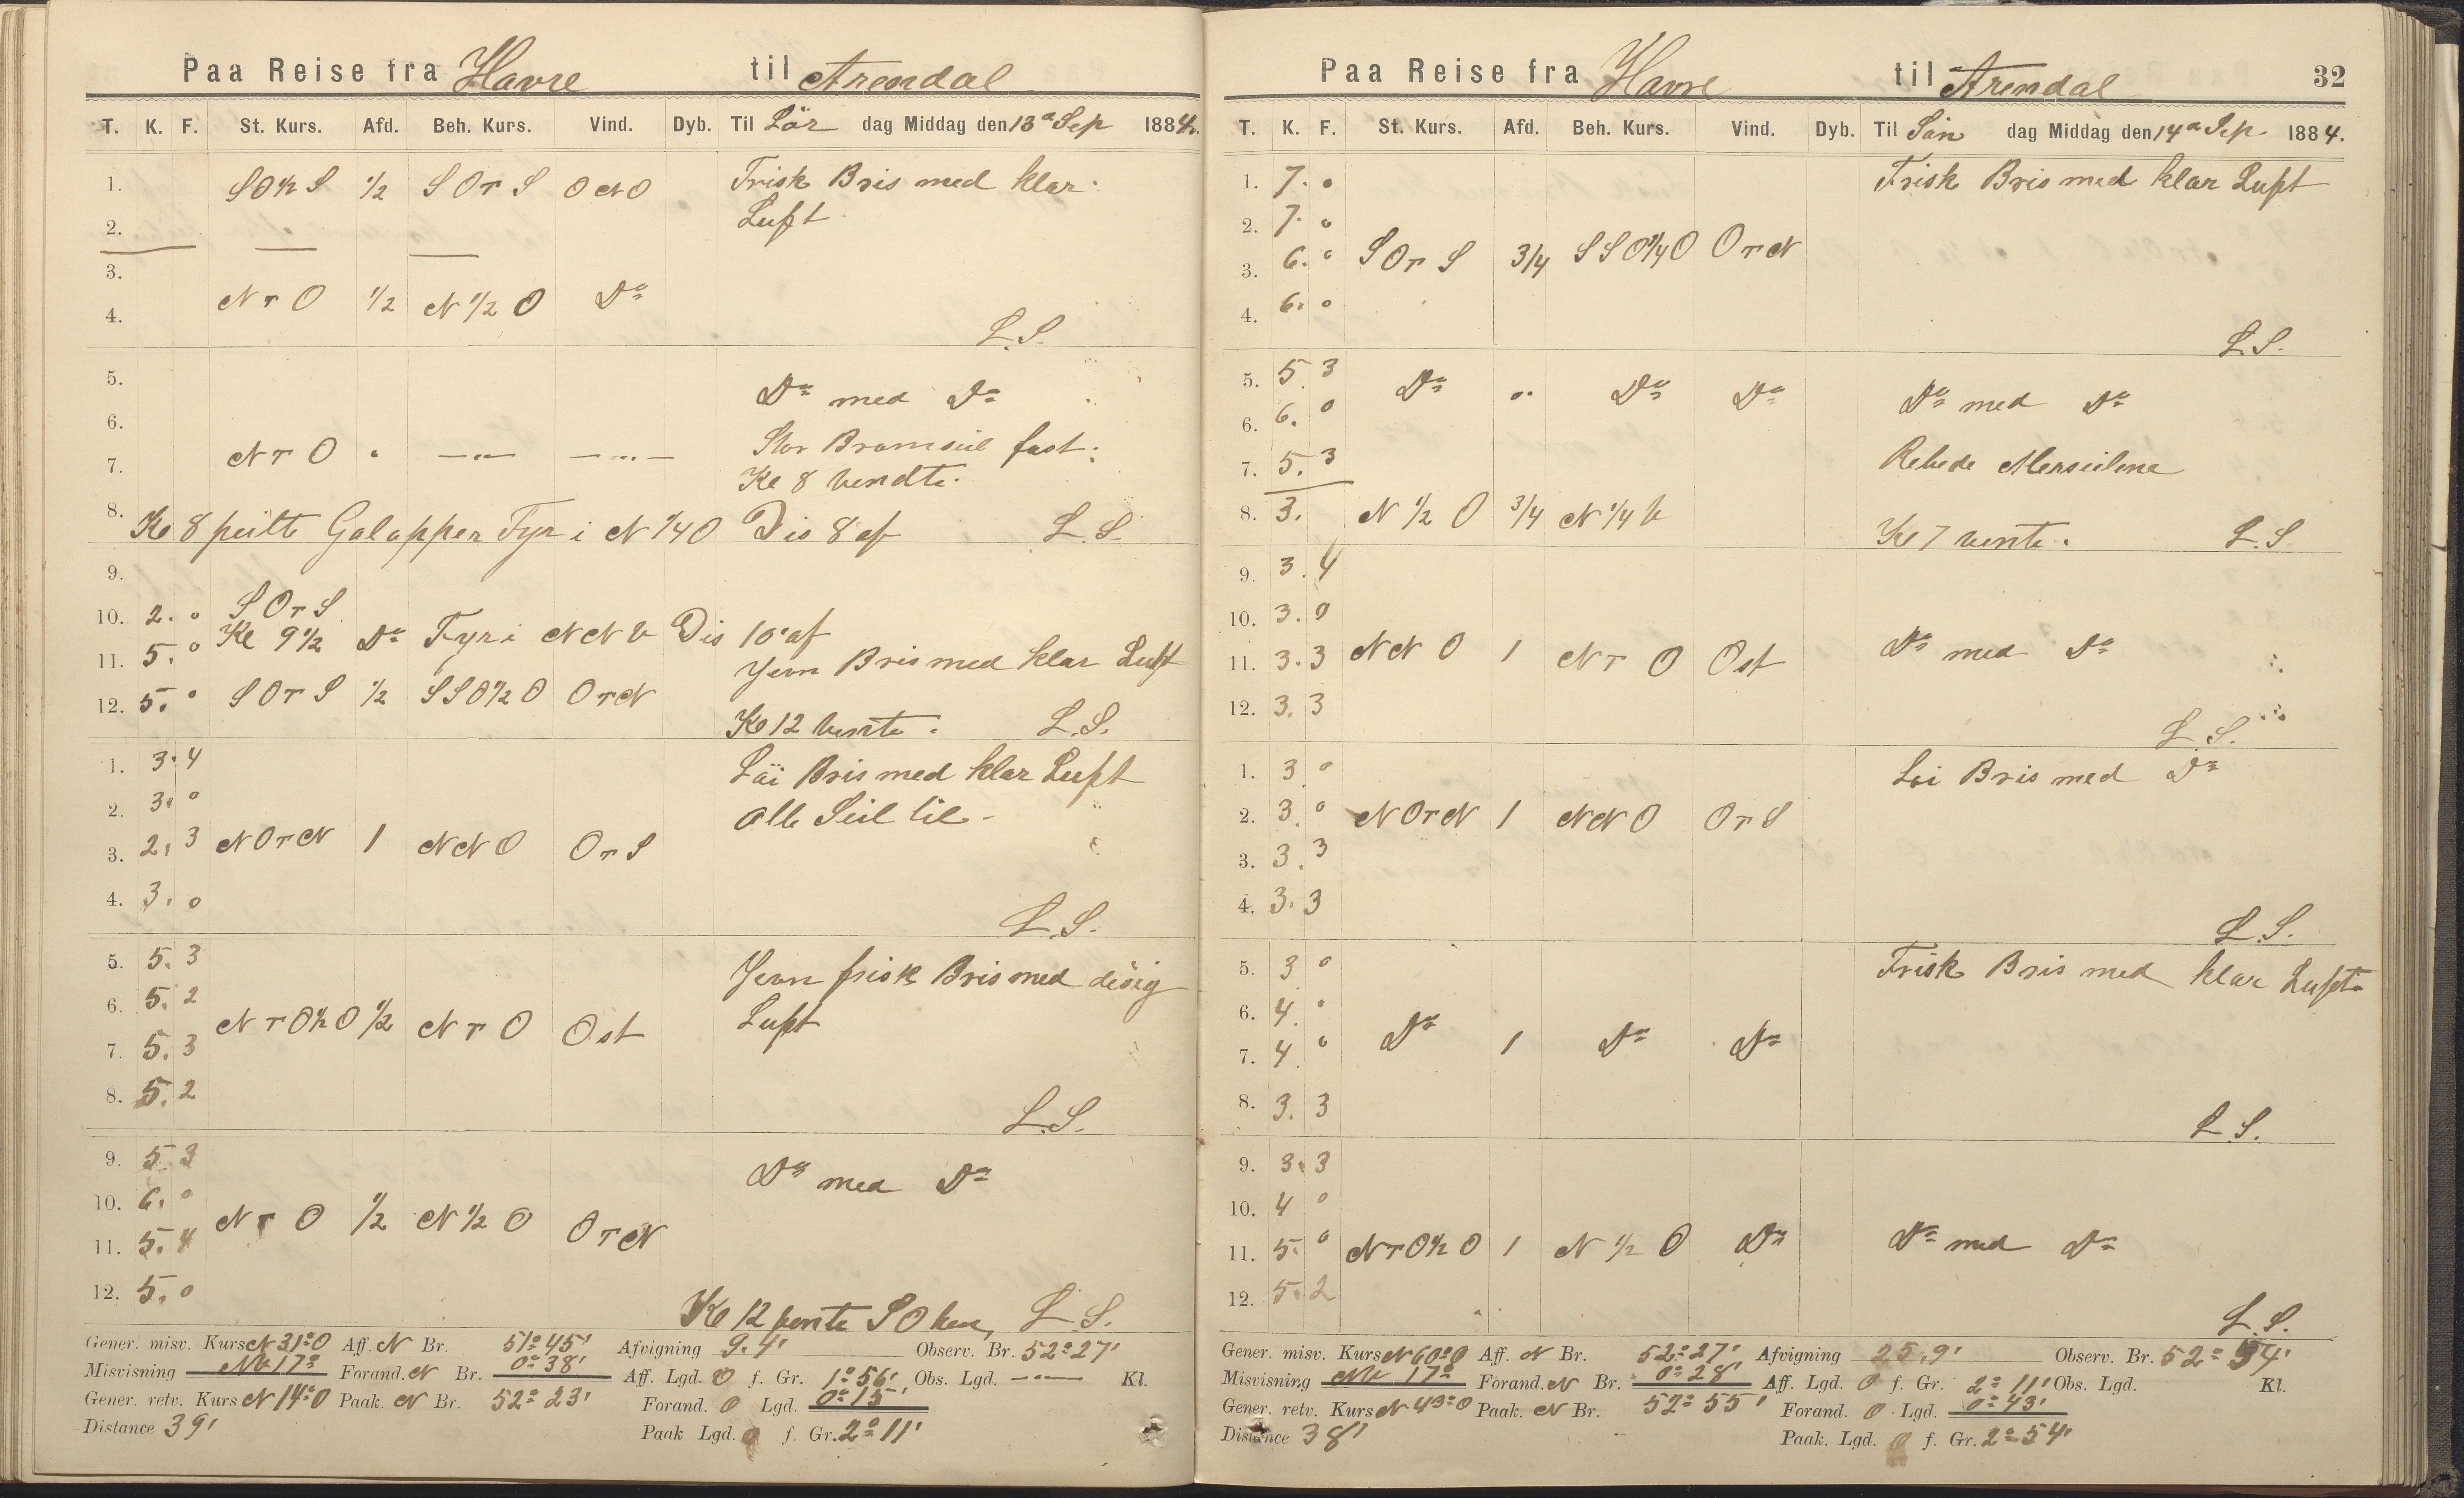 Paa Reise fra Havre til Arendal
T. K. F. St. Kurs. Afd. Beh. Kurs. Vind. Dyb. Til Lör dag Middag den 13de Sep 1884.
1. SO½S ½ SOrS ONO Frisk Bris med klar
2. Luft
3.
4. NrO ½ N½O Do
L.S.
5. Do med Do
6.
7. NrO " —"— —"— Stor Bramseil fast.
Kl 8 vendte.
8. Kl 8 peilte Galopper Fyr i N¼O Dis 8 af L.S.
9.
10. 2. 0 SOrS
Kl 9½ Do Fyr i NNV Dis 10 af
11. 5. 0 Jevn Bris med klar Luft
12. 5. 0 SOrS ½ SSO½O OrN
Kl 12 vente. L.S.
1. 3. 4 Löi Bris med klar Luft
2. 3. 0 alle Seil til
3. 2. 3 NOrN 1 NNO OrS
4. 3. 0
L.S.
5. 5. 3 Jevn frisk Bris med disig
6. 5. 2 NrO½O ½ NrO Ost Luft
7. 5. 3
8. 5. 2
L.S.
9. 5. 3 Do med Do
10. 6. 0
11. 5. 4 NrO ½ N½O OrN
12. 5. 0
Kl 12 vente SO L.S.
Gener. misv. Kurs N31°O Aff. N Br. 51°45' Afvigning 9.4' Observ. Br. 52°27'
Misvisning NV 17° Forand. N Br. 0°38' Aff. Lgd. O f. Gr. 1°56' Obs. Lgd. —"— Kl.
Gener. retv. Kurs N14°O Paak. N Br. 52°23' Forand. O Lgd. 0°15'
Distance 39' Paak Lgd. O f. Gr. 2°11'
Paa Reise fra Havre til Arendal 32
T. K. F. St. Kurs. Afd. Beh. Kurs. Vind. Dyb. Til Sön dag Middag den 14de Sep. 1884.
1. 7. 0 Frisk Bris med klar Luft
2. 7. 0
3. 6. 0 SOrS 3/4 SSO¼O OrN
4. 6. 0
L.S.
5. 5. 3 Do " Do Do Do med Do
6. 6. 0
7. 5. 3 Rebede Merseilene
8. 3. N½O 3/4 N¼V
Kl 7 vente. L.S.
9. 3. 4
10. 3. 0
11. 3. 3 NNO 1 NrO Ost Do med Do
12. 3. 3
L.S.
1. 3 0 Löi Bris med Do
2. 3. 0 NOrN 1 NNO OrS
3. 3. 3
4. 3. 3
L.S.
5. 3 0 Frisk Bris med klar Luft
6. 4. 0
7. 4. 0 Do 1 Do Do
8. 3. 3
L.S.
9. 3. 3
10. 4 0
11. 5. 0 NrO½O 1 N½O Do Do med Do
12. 5. 2
L.S.
Gener. misv. Kurs N60°O Aff. N Br. 52°27' Afvigning 25.9' Observ. Br. 52°54'
Misvisning NV 17° Forand. N Br. 0°28' Aff. Lgd. O f. Gr. 2°11' Obs. Lgd. Kl.
Gener. retv. Kurs N43°O Paak. N Br. 52°55' Forand. O Lgd. 0°43'
Distance 38' Paak. Lgd. O f. Gr. 2°54'